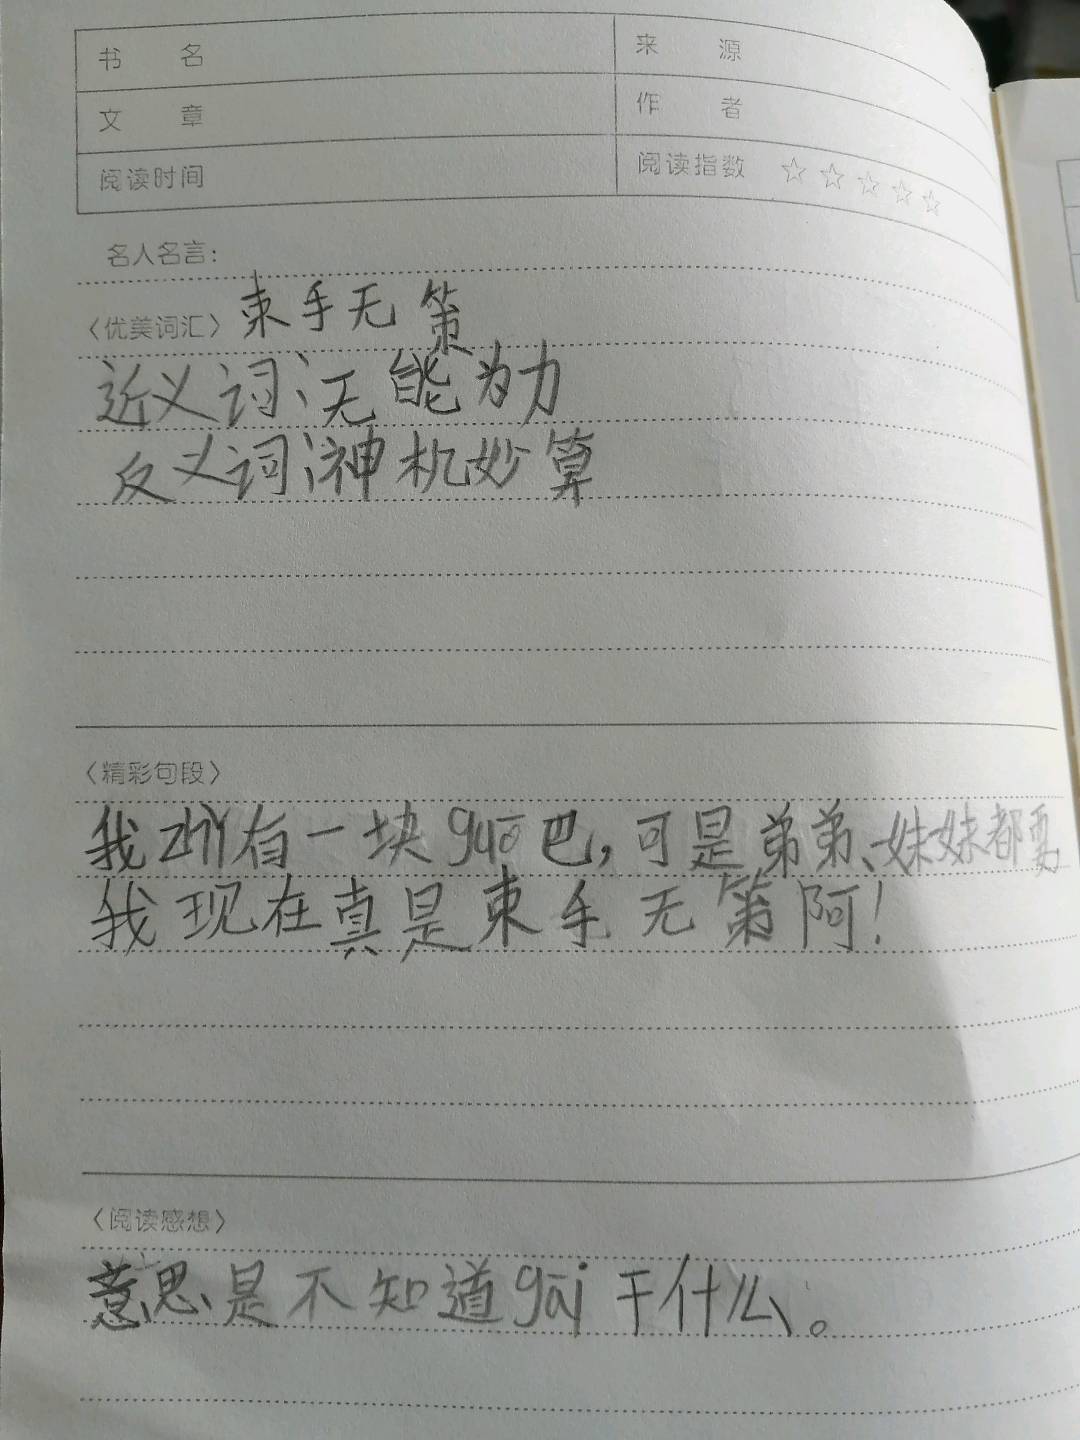 书 名 来 源
文 章 作 者
阅读时间 阅读指数 ☆☆☆☆☆
名人名言：
〈优美词汇〉束手无策
近义词：无能为力
反义词：神机妙算
〈精彩句段〉
我zhǐ有一块guō巴，可是弟弟、妹妹都要
我现在真是束手无策阿！
〈阅读感想〉
意思是不知道gāi干什么。